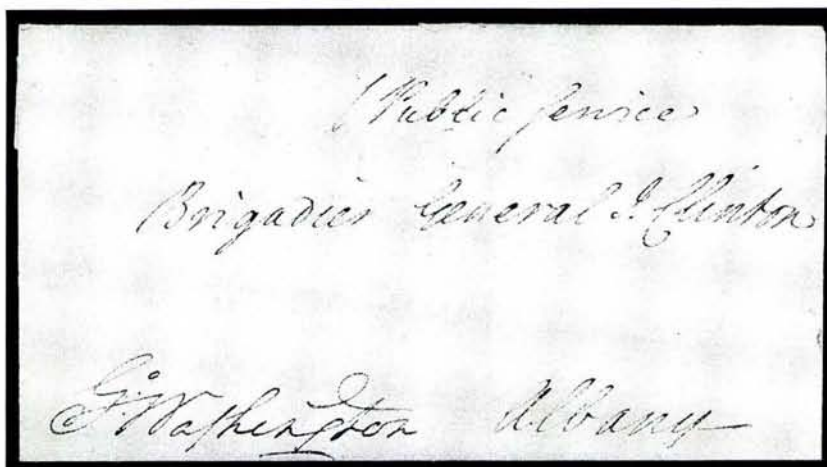 Public Service
Brigadier General J. Clinton
G:Washington Albany